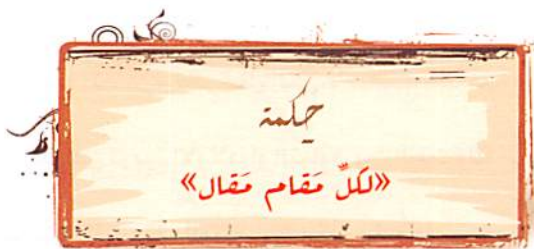 حكمة
«لكلِّ مَقام مَقال»